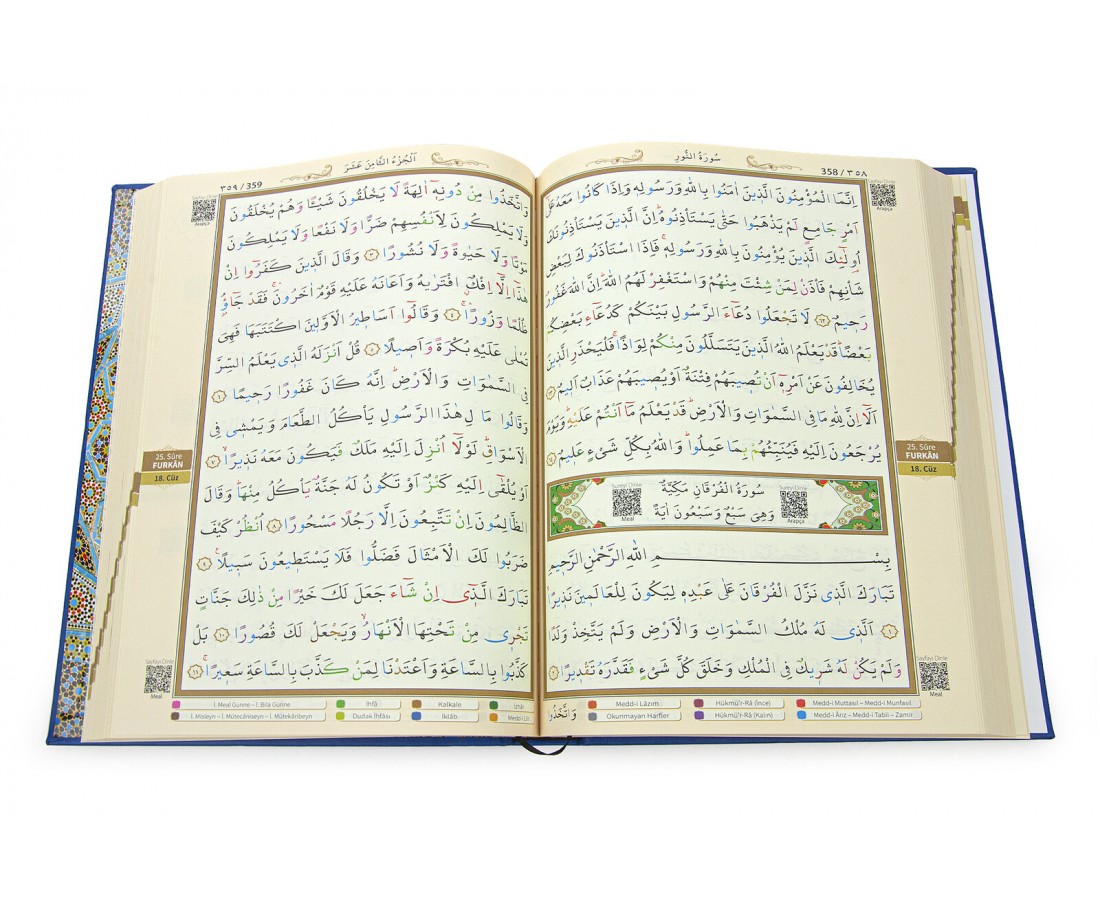 358 / ٣٥٨
سُورَةُ النُّورِ
Sayfayı Dinle
Arapça
اِنَّمَا الْمُؤْمِنُونَ الَّذٖينَ اٰمَنُوا بِاللّٰهِ وَرَسُولِهٖ وَاِذَا كَانُوا مَعَهُ عَلٰٓى
اَمْرٍ جَامِعٍ لَمْ يَذْهَبُوا حَتّٰى يَسْتَأْذِنُوهُۜ اِنَّ الَّذٖينَ يَسْتَأْذِنُونَكَ
اُو۬لٰٓئِكَ الَّذٖينَ يُؤْمِنُونَ بِاللّٰهِ وَرَسُولِهٖۚ فَاِذَا اسْتَأْذَنُوكَ لِبَعْضِ
شَأْنِهِمْ فَأْذَنْ لِمَنْ شِئْتَ مِنْهُمْ وَاسْتَغْفِرْ لَهُمُ اللّٰهَۜ اِنَّ اللّٰهَ غَفُورٌ
رَحٖيمٌ ﴿٦٢﴾ لَا تَجْعَلُوا دُعَٓاءَ الرَّسُولِ بَيْنَكُمْ كَدُعَٓاءِ بَعْضِكُمْ
بَعْضًاۜ قَدْ يَعْلَمُ اللّٰهُ الَّذٖينَ يَتَسَلَّلُونَ مِنْكُمْ لِوَاذًاۚ فَلْيَحْذَرِ الَّذٖينَ
يُخَالِفُونَ عَنْ اَمْرِهٖٓ اَنْ تُصٖيبَهُمْ فِتْنَةٌ اَوْ يُصٖيبَهُمْ عَذَابٌ اَلٖيمٌ ﴿٦٣﴾
اَلَٓا اِنَّ لِلّٰهِ مَا فِي السَّمٰوَاتِ وَالْاَرْضِۜ قَدْ يَعْلَمُ مَٓا اَنْتُمْ عَلَيْهِۜ وَيَوْمَ
يُرْجَعُونَ اِلَيْهِ فَيُنَبِّئُهُمْ بِمَا عَمِلُواۜ وَاللّٰهُ بِكُلِّ شَيْءٍ عَلٖيمٌ
25. Sûre
FURKÂN
18. Cüz
Sureyi Dinle
Arapça
سُورَةُ الْفُرْقَانِ مَكِّيَّةٌ
وَهِيَ سَبْعٌ وَسَبْعُونَ اٰيَةً
Sureyi Dinle
Meal
بِسْمِ اللّٰهِ الرَّحْمٰنِ الرَّحٖيمِ
تَبَارَكَ الَّذٖي نَزَّلَ الْفُرْقَانَ عَلٰى عَبْدِهٖ لِيَكُونَ لِلْعَالَمٖينَ نَذٖيرًا
﴿١﴾ اَلَّذٖي لَهُ مُلْكُ السَّمٰوَاتِ وَالْاَرْضِ وَلَمْ يَتَّخِذْ وَلَدًا
وَلَمْ يَكُنْ لَهُ شَرٖيكٌ فِي الْمُلْكِ وَخَلَقَ كُلَّ شَيْءٍ فَقَدَّرَهُ تَقْدٖيرًا ﴿٢﴾
Sayfayı Dinle
Meal
وَاتَّخَذُوا
Medd-i Lâzım
Hükmü'r-Râ (İnce)
Medd-i Muttasıl – Medd-i Munfasıl
Okunmayan Harfler
Hükmü'r-Râ (Kalın)
Medd-i Ârız – Medd-i Tabii – Zamir
٣٥٩ / 359
اَلْجُزْءُ الثَّامِنَ عَشَرَ
Arapça
وَاتَّخَذُوا مِنْ دُونِهٖٓ اٰلِهَةً لَا يَخْلُقُونَ شَيْـًٔا وَهُمْ يُخْلَقُونَ
وَلَا يَمْلِكُونَ لِاَنْفُسِهِمْ ضَرًّا وَلَا نَفْعًا وَلَا يَمْلِكُونَ
مَوْتًا وَلَا حَيٰوةً وَلَا نُشُورًا ﴿٣﴾ وَقَالَ الَّذٖينَ كَفَرُٓوا اِنْ
هٰذَٓا اِلَّٓا اِفْكٌۨ افْتَرٰيهُ وَاَعَانَهُ عَلَيْهِ قَوْمٌ اٰخَرُونَۚ فَقَدْ جَٓاؤُ۫
ظُلْمًا وَزُورًاۚ ﴿٤﴾ وَقَالُٓوا اَسَاطٖيرُ الْاَوَّلٖينَ اكْتَتَبَهَا فَهِيَ
تُمْلٰى عَلَيْهِ بُكْرَةً وَاَصٖيلًا ﴿٥﴾ قُلْ اَنْزَلَهُ الَّذٖي يَعْلَمُ السِّرَّ
فِي السَّمٰوَاتِ وَالْاَرْضِۜ اِنَّهُ كَانَ غَفُورًا رَحٖيمًا ﴿٦﴾
وَقَالُوا مَالِ هٰذَا الرَّسُولِ يَأْكُلُ الطَّعَامَ وَيَمْشٖي فِي
الْاَسْوَاقِۜ لَوْلَٓا اُنْزِلَ اِلَيْهِ مَلَكٌ فَيَكُونَ مَعَهُ نَذٖيرًاۙ ﴿٧﴾
اَوْ يُلْقٰٓى اِلَيْهِ كَنْزٌ اَوْ تَكُونُ لَهُ جَنَّةٌ يَأْكُلُ مِنْهَاۜ وَقَالَ
الظَّالِمُونَ اِنْ تَتَّبِعُونَ اِلَّا رَجُلًا مَسْحُورًا ﴿٨﴾ اُنْظُرْ كَيْفَ
ضَرَبُوا لَكَ الْاَمْثَالَ فَضَلُّوا فَلَا يَسْتَطٖيعُونَ سَبٖيلًا۟ ﴿٩﴾
تَبَارَكَ الَّذٖٓي اِنْ شَٓاءَ جَعَلَ لَكَ خَيْرًا مِنْ ذٰلِكَ جَنَّاتٍ
تَجْرٖي مِنْ تَحْتِهَا الْاَنْهَارُۙ وَيَجْعَلْ لَكَ قُصُورًا ﴿١٠﴾ بَلْ
كَذَّبُوا بِالسَّاعَةِ وَاَعْتَدْنَا لِمَنْ كَذَّبَ بِالسَّاعَةِ سَعٖيرًاۚ ﴿١١﴾
25. Sûre
FURKÂN
18. Cüz
Sayfayı Dinle
Meal
İ. Meal Gunne – İ. Bilâ Gunne
İhfâ
Kalkale
İzhâr
İ. Misleyn – İ. Mütecâniseyn – İ. Mütekâribeyn
Dudak İhfâsı
İklâb